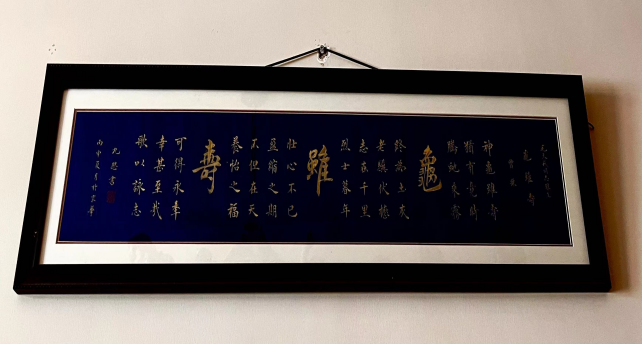 龜雖壽
曹操
神龜雖壽
猶有竟時
騰蛇乘霧
龜
終為土灰
老驥伏櫪
志在千里
烈士暮年
雖
壯心不已
盈縮之期
不但在天
養怡之福
壽
可得永年
幸甚至哉
歌以詠志